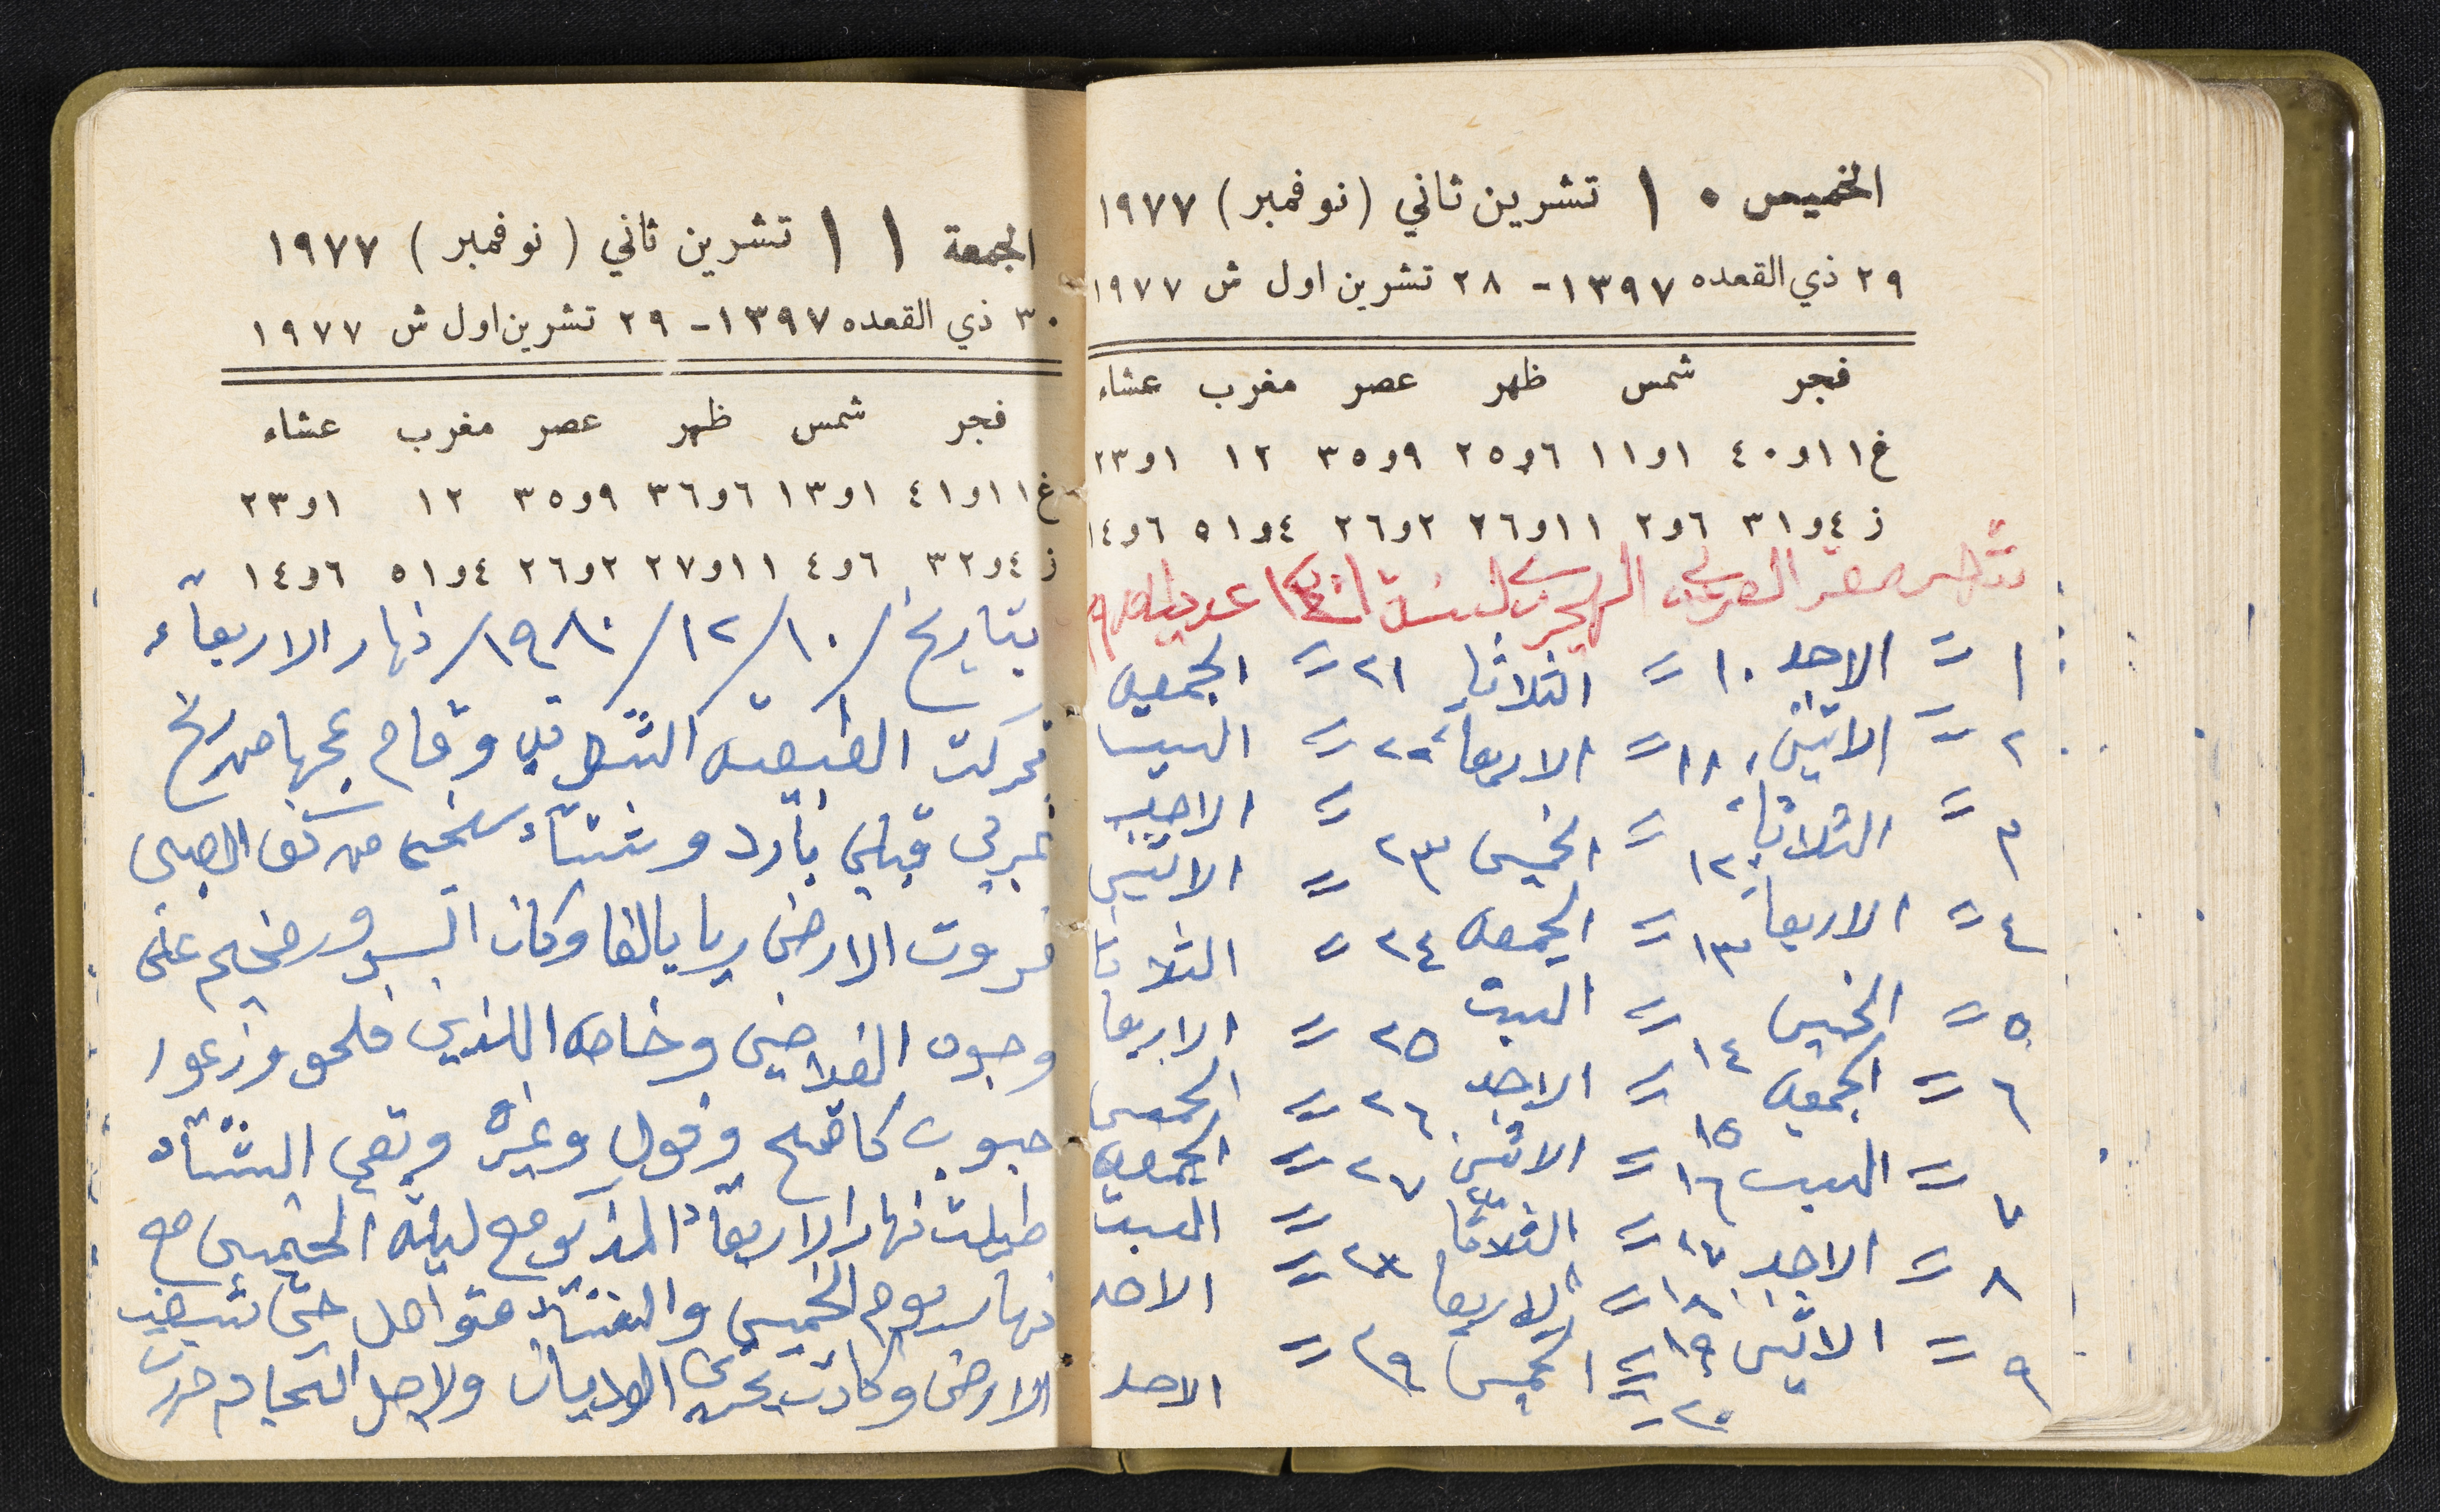 الخميس ١٠ تشرين ثاني (نوفمبر) ١٩٧٧
٢٩ ذي القعده ١٣٩٧ - ٢٨ تشرين اول ش ١٩٧٧
فجر شمس ظهر عصر مغرب عشاء
غ ١١و٤٠ ١و١١ ٦و٢٥ ٩و٣٥ ١٢ ١و٢٣
ز ٤و٣١ ٦و٢ ١١و٢٦ ٢و٢٦ ٤و٥١ ٦و١٤
شهر صفر العربي الهجري لسنة
١ = الاحد ١٠ = الثلاثا ٢١ = الجمعه
٢ = الاثنين ١١ = الاربعاء ٢٢ = السبت
٣ = الثلاثاء ١٢ = الخميس ٢٣ = الاحد
٤ = الاربعاء ١٣ = الجمعه ٢٤ = الاثنين
٥ = الخميس ١٤ = السبت ٢٥ = الثلاثا
٦ = الجمعه ١٥ = الاحد ٢٦ = الاربعا
٧ = السبت ١٦ = الاثنين ٢٧ = الخميس
٨ = الاحد ١٧ = الثلاثا ٢٨ = الجمعه
٩ = الاثنين ١٨ = الاربعا = السبت
١٩ = الخميس ٢٩ = الاحد
٢٠ = الاحد
الجمعة ١١ تشرين ثاني (نوفمبر) ١٩٧٧
٣٠ ذي القعده ١٣٩٧ - ٢٩ تشرين اول ش ١٩٧٧
فجر شمس ظهر عصر مغرب عشاء
غ ١١و٤١ ١و١٣ ٦و٣٦ ٩و٣٥ ١٢ ١و٢٣
ز ٤و٣٢ ٦و٤ ١١و٢٧ ٢و٢٦ ٤و٥١ ٦و١٤
بتاريخ ١٠/١٢/١٩٨٠/ نهار الاربعاء
تحركت الطبيعه الشرقيه وقام عجها من ريح
غربي قبلي بارد وشتاء سخي من كف
فروت الارض ريا بالغا وكان السرور مخيم على
وجوه الفلاحين وخاصه اللذين فلحو وزرعوا
حبوب كاقمح وفول وغيره وبقي الشتاء
طيلت نهار الاربعاء المذكور مع ليلة الخميس مع
نهار يوم الخميس والشتاء متواصل حتى شبعت
الارض وكادت تجري الوديان ولاجل